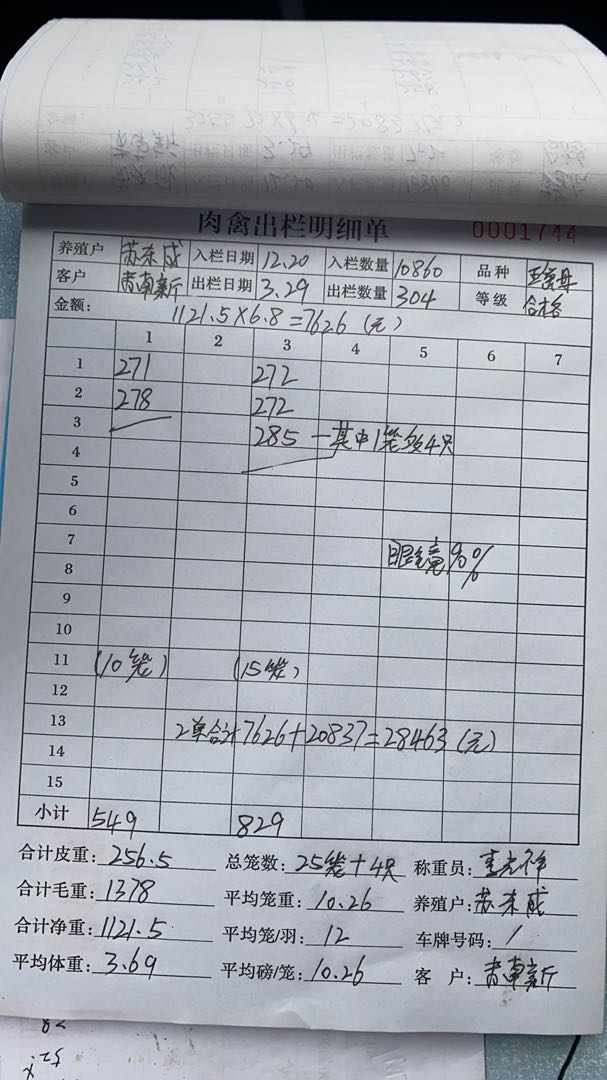 肉禽出栏明细单 0001744
养殖户 苏东成 入栏日期 12.20 入栏数量 10860 品种
客户 黄南新 出栏日期 3.29 出栏数量 304 等级 合格
金额: 1121.5×6.8=7626(元)
1 2 3 4 5 6 7
1 271 272
2 278 272
3 285 一其中1笼多4只
4
5
6
7 眼镜90%
8
9
10
11 (10笼) (15笼)
12
13 2单合计7626+20837=28463(元)
14
15
小计 549 829
合计皮重: 256.5 总笼数: 25笼+4只 称重员:
合计毛重: 1378 平均笼重: 10.26 养殖户: 苏东成
合计净重: 1121.5 平均笼/羽: 12 车牌号码: /
平均体重: 3.69 平均磅/笼: 10.26 客户: 黄南新